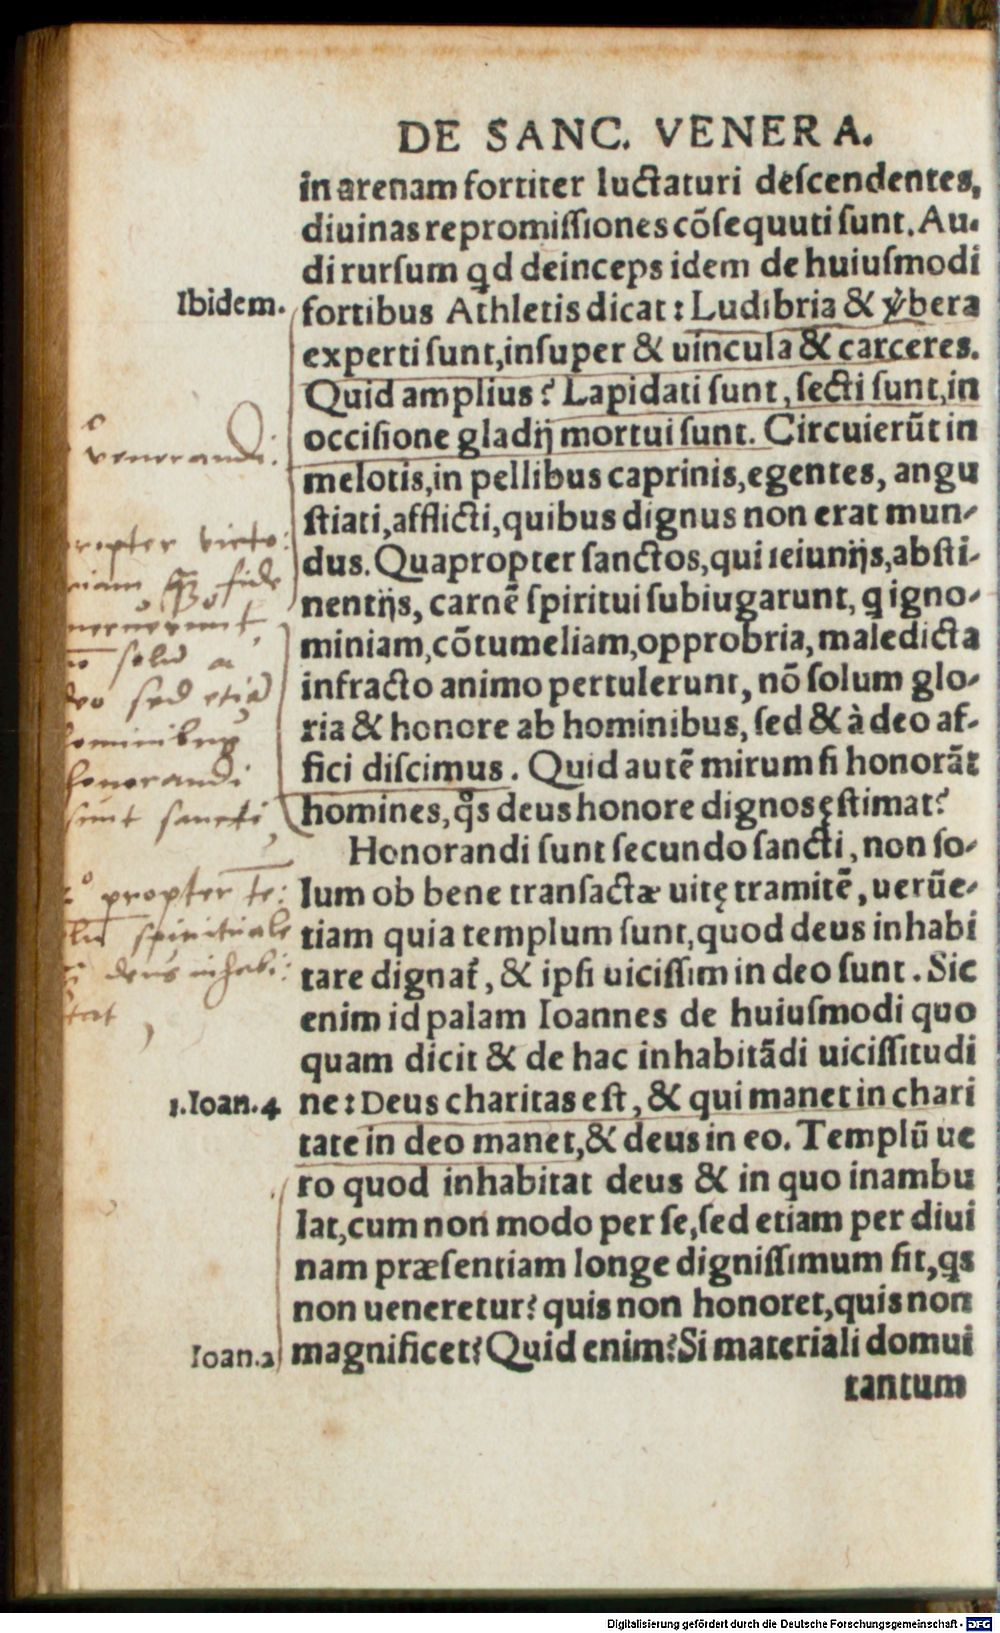 DE SANC. VENERA.
in arenam fortiter luctaturi deſcendentes,
diuinas repromiſſiones cõſequuti ſunt. Au-
di rurſum qd deinceps idem de huiuſmodi
Ibidem.
fortibus Athletis dicat: Ludibria & ṽbera
experti ſunt, inſuper & uincula & carceres.
Quid amplius? Lapidati ſunt, ſecti ſunt, in
occiſione gladij mortui ſunt. Circuierũt in
melotis, in pellibus caprinis, egentes, angu
ſtiati, afflicti, quibus dignus non erat mun-
dus. Quapropter ſanctos, qui ieiunijs, abſti-
nentijs, carnẽ ſpiritui ſubiugarunt, q igno-
miniam, cõtumeliam, opprobria, maledicta
infracto animo pertulerunt, nõ ſolum glo-
ria & honore ab hominibus, ſed & à deo af-
fici diſcimus. Quid autẽ mirum ſi honorãt
homines, qs deus honore dignos ęſtimat?
venerandi:
propter victo:
fide
ſolũ a
deo ſed etiã
hominibus
honorandi
ſunt ſancti,
Honorandi ſunt ſecundo ſancti, non ſo-
lum ob bene tranſactæ uitę tramitẽ, uerũe-
tiam quia templum ſunt, quod deus inhabi
tare dignat̃, & ipſi uiciſſim in deo ſunt. Sic
enim id palam Ioannes de huiuſmodi quo
quam dicit & de hac inhabitãdi uiciſſitudi
2° propter te:
ſpirituale
deus inhabi:
tat,
1.Ioan.4
ne: Deus charitas eſt, & qui manet in chari
tate in deo manet, & deus in eo. Templũ ue
ro quod inhabitat deus & in quo inambu
lat, cum non modo per ſe, ſed etiam per diui
nam præſentiam longe digniſſimum ſit, qs
non ueneretur? quis non honoret, quis non
Ioan.2
magnificet? Quid enim? Si materiali domui
tantum
Digitalisierung gefördert durch die Deutsche Forschungsgemeinschaft - DFG